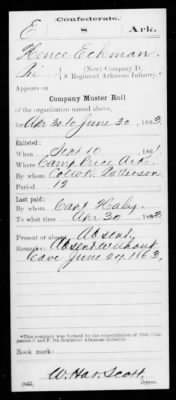 Confederate.
E 8 Ark.
Hence Eckman
(New) Company D,
8 Regiment Arkansas Infantry.*
Appears on
Company Muster Roll
of the organization named above,
for Apr 30 to June 30, 1863.
Enlisted:
When Sept 10, 1861
Where Camp Price Ark.
By whom
Period 12
Last paid:
By whom Capt Haley
To what time Apr 30, 186
Present or absent Absent
Remarks: Absent without
leave June 24, 1863.
*This company was formed by the consolidation of Old Companies C and F, 8th Regiment Arkansas Infantry.
Book mark:
W. Hav. Scott
(642) Copyist.